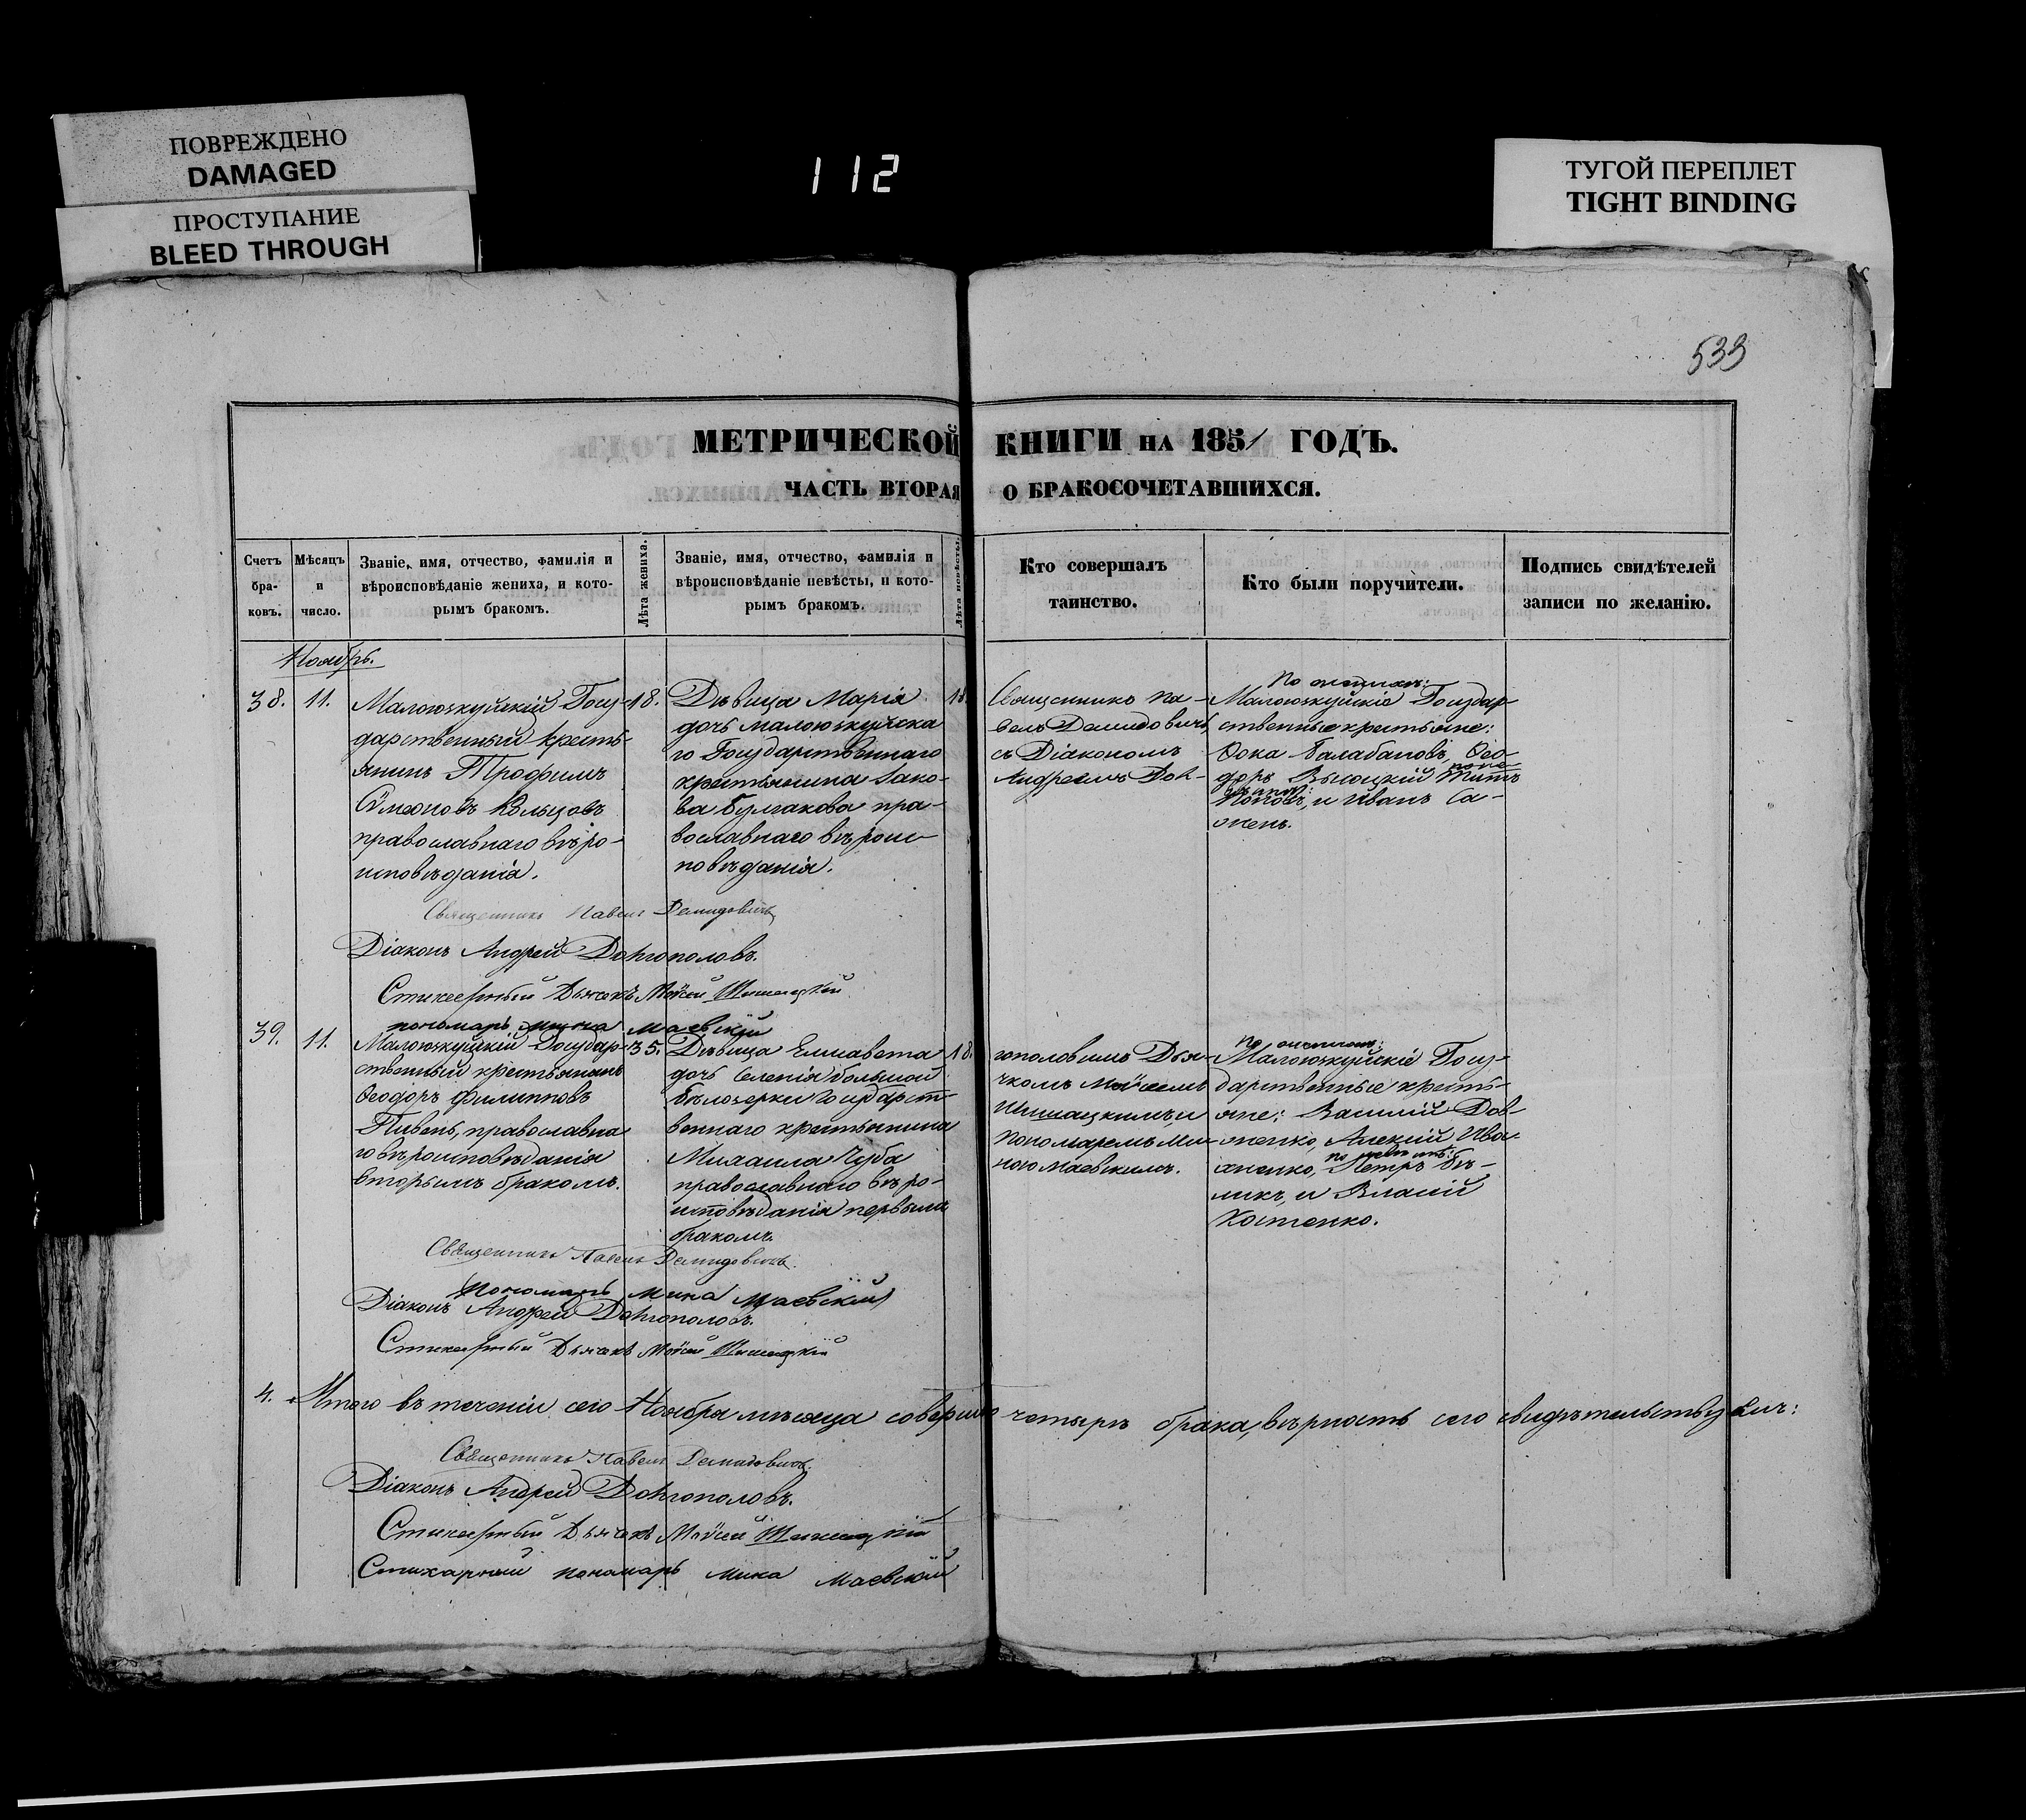 ПОВРЕЖДЕНО
DAMAGED
ПРОСТУПАНИЕ
BLEED THROUGH
112
ТУГОЙ ПЕРЕПЛЕТ
TIGHT BINDING
533
МЕТРИЧЕСКОЙ КНИГИ НА 1851 ГОДЪ.
ЧАСТЬ ВТОРАЯ О БРАКОСОЧЕТАВШИХСЯ.
Счетъ
бра-
ковъ.
Мѣсяцъ
и
число.
Званіе, имя, отчество, фамилія и
вѣроисповѣданіе жениха, и кото-
рымъ бракомъ.
Лѣта жениха.
Званіе, имя, отчество, фамилія и
вѣроисповѣданіе невѣсты, и кото-
рымъ бракомъ.
Лѣта невѣсты.
Кто совершалъ
таинство.
Кто были поручители.
Подпись свидѣтелей
записи по желанію.
Ноябрь.
38.
11.
Малоюзкуйскій Госу-
дарственный кресть-
янинъ Трофимъ
Сѵмеоновъ Кольцовъ
православнаго вѣро-
исповѣданія.
18.
Дѣвица Марія
дочь малоюзкуйска
го Государственнаго
крестьянина Іако-
ва Булгакова пра-
вославнаго вѣроис-
повѣданія.
18.
Священникъ Па-
велъ Демидовичъ,
съ Діакономъ
Андреемъ Дол-
По женихѣ:
Малоюзкуйскіе Государ-
ственные крестьяне:
Ѳока Балабановъ, Ѳео-
доръ Высоцкій по не-
вѣстѣ: Титъ
Поповъ, и Иванъ Са-
Священникъ Павелъ Демидовичъ
Діаконъ Андрей Долгополовъ.
Стихарный Дьячекъ Мойсей Шишацкій
пономарь Мина Маевскій
39.
11.
Малоюзкуйскій Государ-
ственный крестьянинъ
Ѳеодоръ Филипповъ
Пивень, православна
го вѣроисповѣданія
вторымъ бракомъ.
35.
Дѣвица Елисавета
дочь Селенія большой
Бѣлозерки Государст-
веннаго крестьянина
Михаила Чуба
православнаго вѣро-
исповѣданія первымъ
бракомъ.
18.
гополовымъ Дья-
чкомъ Мойсеемъ
Шишацкимъ, и
Пономаремъ Ми-
ною Маевскимъ.
По женихѣ:
Малоюзкуйскіе Госу-
дарственные кресть-
яне: Василій Дов-
женко, Алексій Ива-
хненко, по невѣстѣ: Петръ Бѣ-
ликъ, и Власій
Костенко.
Священникъ Павелъ Демидовичъ.
Пономарь Мина Маевскій
Діаконъ Андрей Долгополовъ.
Стихарный Дьячекъ Мойсей Шишацкій
4. Итого въ теченіи сего Ноября мѣсяца совершено четыре брака, вѣрность сего свидѣтельствуемъ:
Священникъ Павелъ Демидовичъ.
Діаконъ Андрей Долгополовъ.
Стихарный Дьячекъ Мойсей Шишацкій
Стихарный пономарь Мина Маевскій